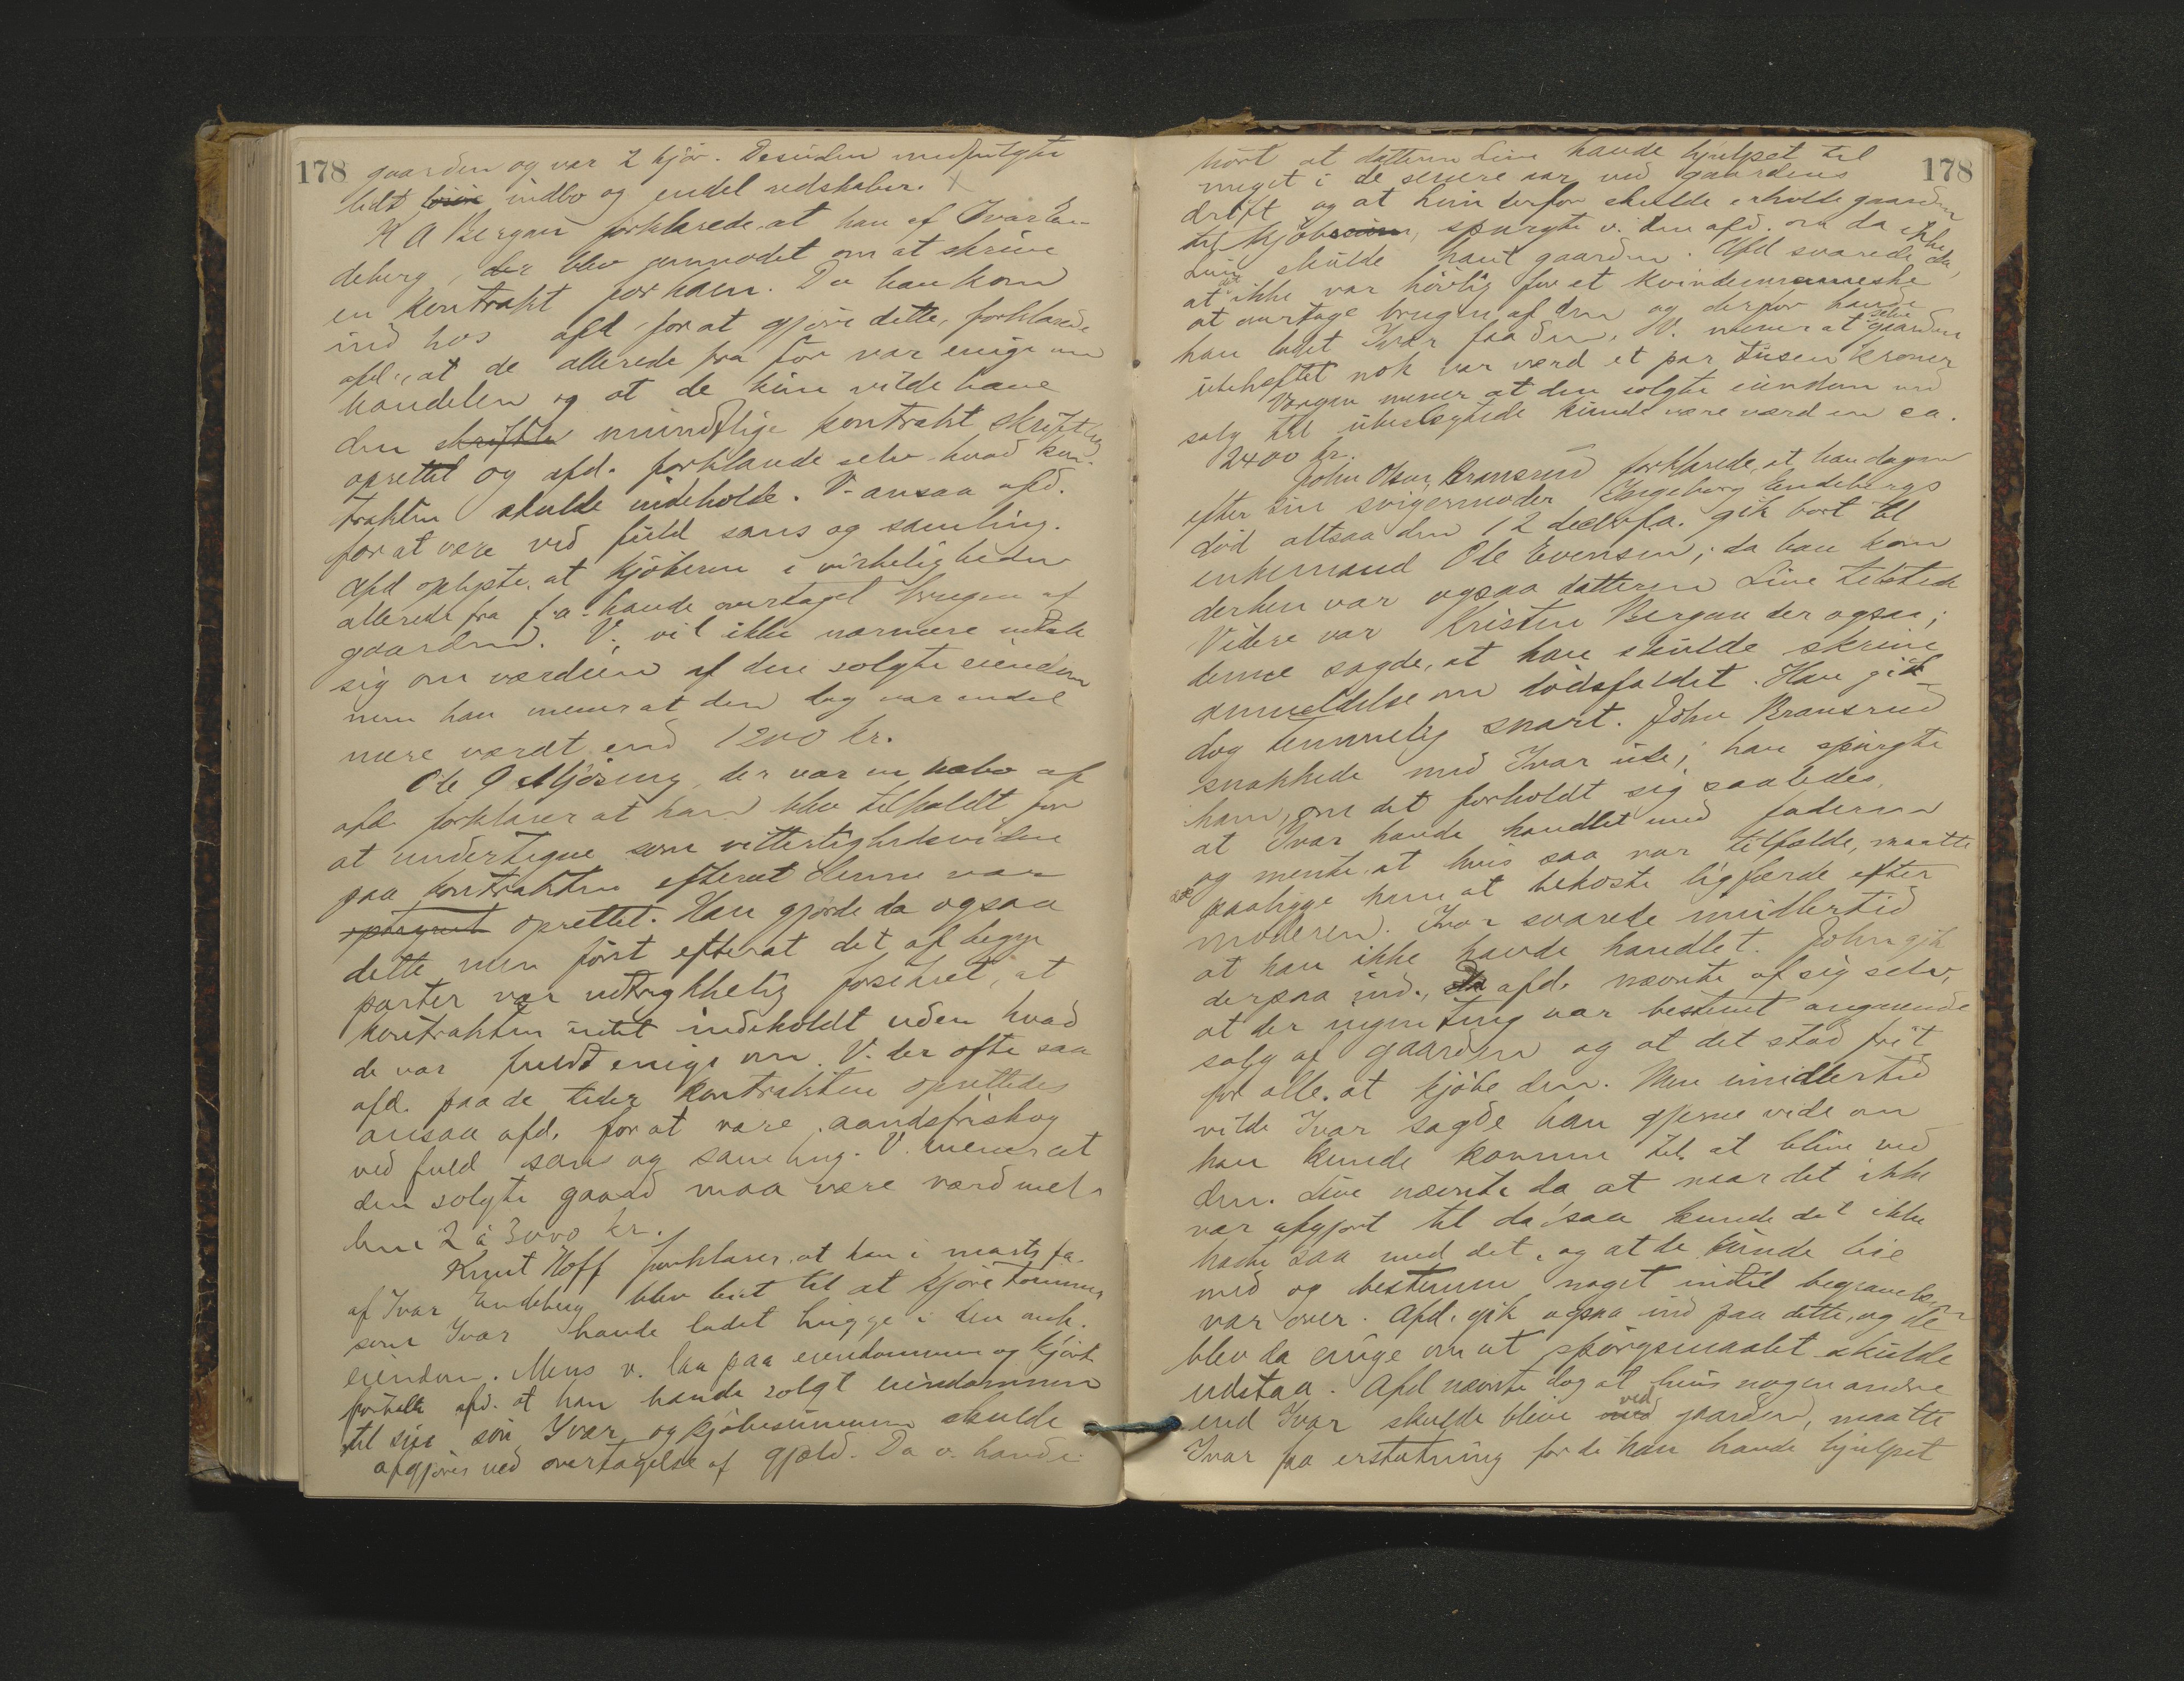 178
gaarden og var 2 kjör. Desuden medfulgte
lidt indbo og endel redskaber. X
K A Bergan forklarede, at han af Ivar En-
deberg, der blev anmodet om at skrive
en kontrakt for ham. Da han kom
ind hos afd for at gjöre dette, forklarede
afd., at de allerede fra för var enige om
handelen og at de kun vilde have
den skriftli mundtlige kontrakt skriftlig
oprettet og afd. forklarede selv hvad kon-
trakten skulde indeholde. V. ansaa afd.
for at være ved fuld sans og samling.
Afd oplyste, at kjöberne i virkeligheden
allerede fra f.a. havde overtaget brugen af
gaarden. V. vil ikke nærmere udtale
sig om værdien af den solgte eiendom
men han mener at den dog var endel
mere værdt end 1200 kr.
Ole O Mjöseng, der var en nabo af
afd. forklarer at han blev tilkaldt for
at undertegne som vitterlighedsvidne
paa kontrakten efterat denne var
oprettet. Han gjorde da ogsaa
dette men först efterat det af begge
parter var udtrykkelig forsikret, at
kontrakten intet indeholdt uden hvad
de var fuldt enige om. V. der ofte saa
afd. paa de tider kontrakten oprettedes
ansaa afd. for at være aandsfrisk og
ved fuld sans og samling. V. mener at
den solgte gaard maa være værd mel-
lem 2 à 3000 kr.
Knut Hoff forklarer, at han i marts fa.
af Ivar Endeberg blev leiet til at kjöre tömmer
som Ivar havde ladet hugge i den omh.
eiendom. Mens v. laa paa eiendommen og kjörte
fortalte afd. at han havde solgt eiendommen
til sin sön Ivar og kjöbesummen skulde
afgjöres ved overtagelse af gjæld. Da v. havde
178
hört at datteren Live havde hjulpet til
meget i de senere aar ved gaardens
drift og at hun derfor skulde erholde gaarden
til kjöbs, spurgte v. den afd. om da ikke
Live skulde havt gaarden. Afd svarede da,
at det ikke var höelig for et kvindemenneske
at overtage brugen af den og derfor havde
han ladet Ivar faa den. V. mener at selve gaarden
ubeheftet nok var værd et par tusen kroner
Vragen mener at den solgte eiendom ved
salg til kunde være værd en ca.
2400 kr.
John Olsen Bransrud forklarede, at han dagen
efter sin svigermoder Ingeborg Endebergs
död altsaa den 12 decbr f.a. gik bort til
enkemand Ole Evensen; da han kom
derhen var ogsaa datteren Live tilstede
Videre var Kristen Bergan der ogsaa;
denne sagde, at han skulde skrive
anmeldelse om dödsfaldet. Han gik
dog temmelig snart. John Bransrud
snakkede med Ivar ude; han spurgte
ham, om det forholdt sig saaledes,
at Ivar havde handlet med faderen
og mente, at hvis saa var tilfælde, maatte
det paaligge ham at bekoste ligfærde efter
moderen. Ivar svarede imidlertid
at han ikke havde handlet. John gik
derpaa ind., Da afd. nævnte af sig selv,
at der ingen ting var bestemt angaaende
salg af gaarden og at det stod frit
for alle at kjöbe den. Men imidlertid
vilde Ivar sagde han gjerne vide om
han kunde komme til at blive ved
den. Live nævnte da at naar det ikke
var afgjort til da, saa kunde det ikke
haste saa med det, og at de kunde bie
med og bestemme noget indtil begravelsen
var over. Afd. gik ogsaa ind paa dette, og de
blev da enige om at spörgsmaalet skulde
udstaa. Afd nævnte dog at hvis nogen andre
end Ivar skulde blive med ved gaarden, maatte
Ivar faa erstatning for de han havde hjulpet